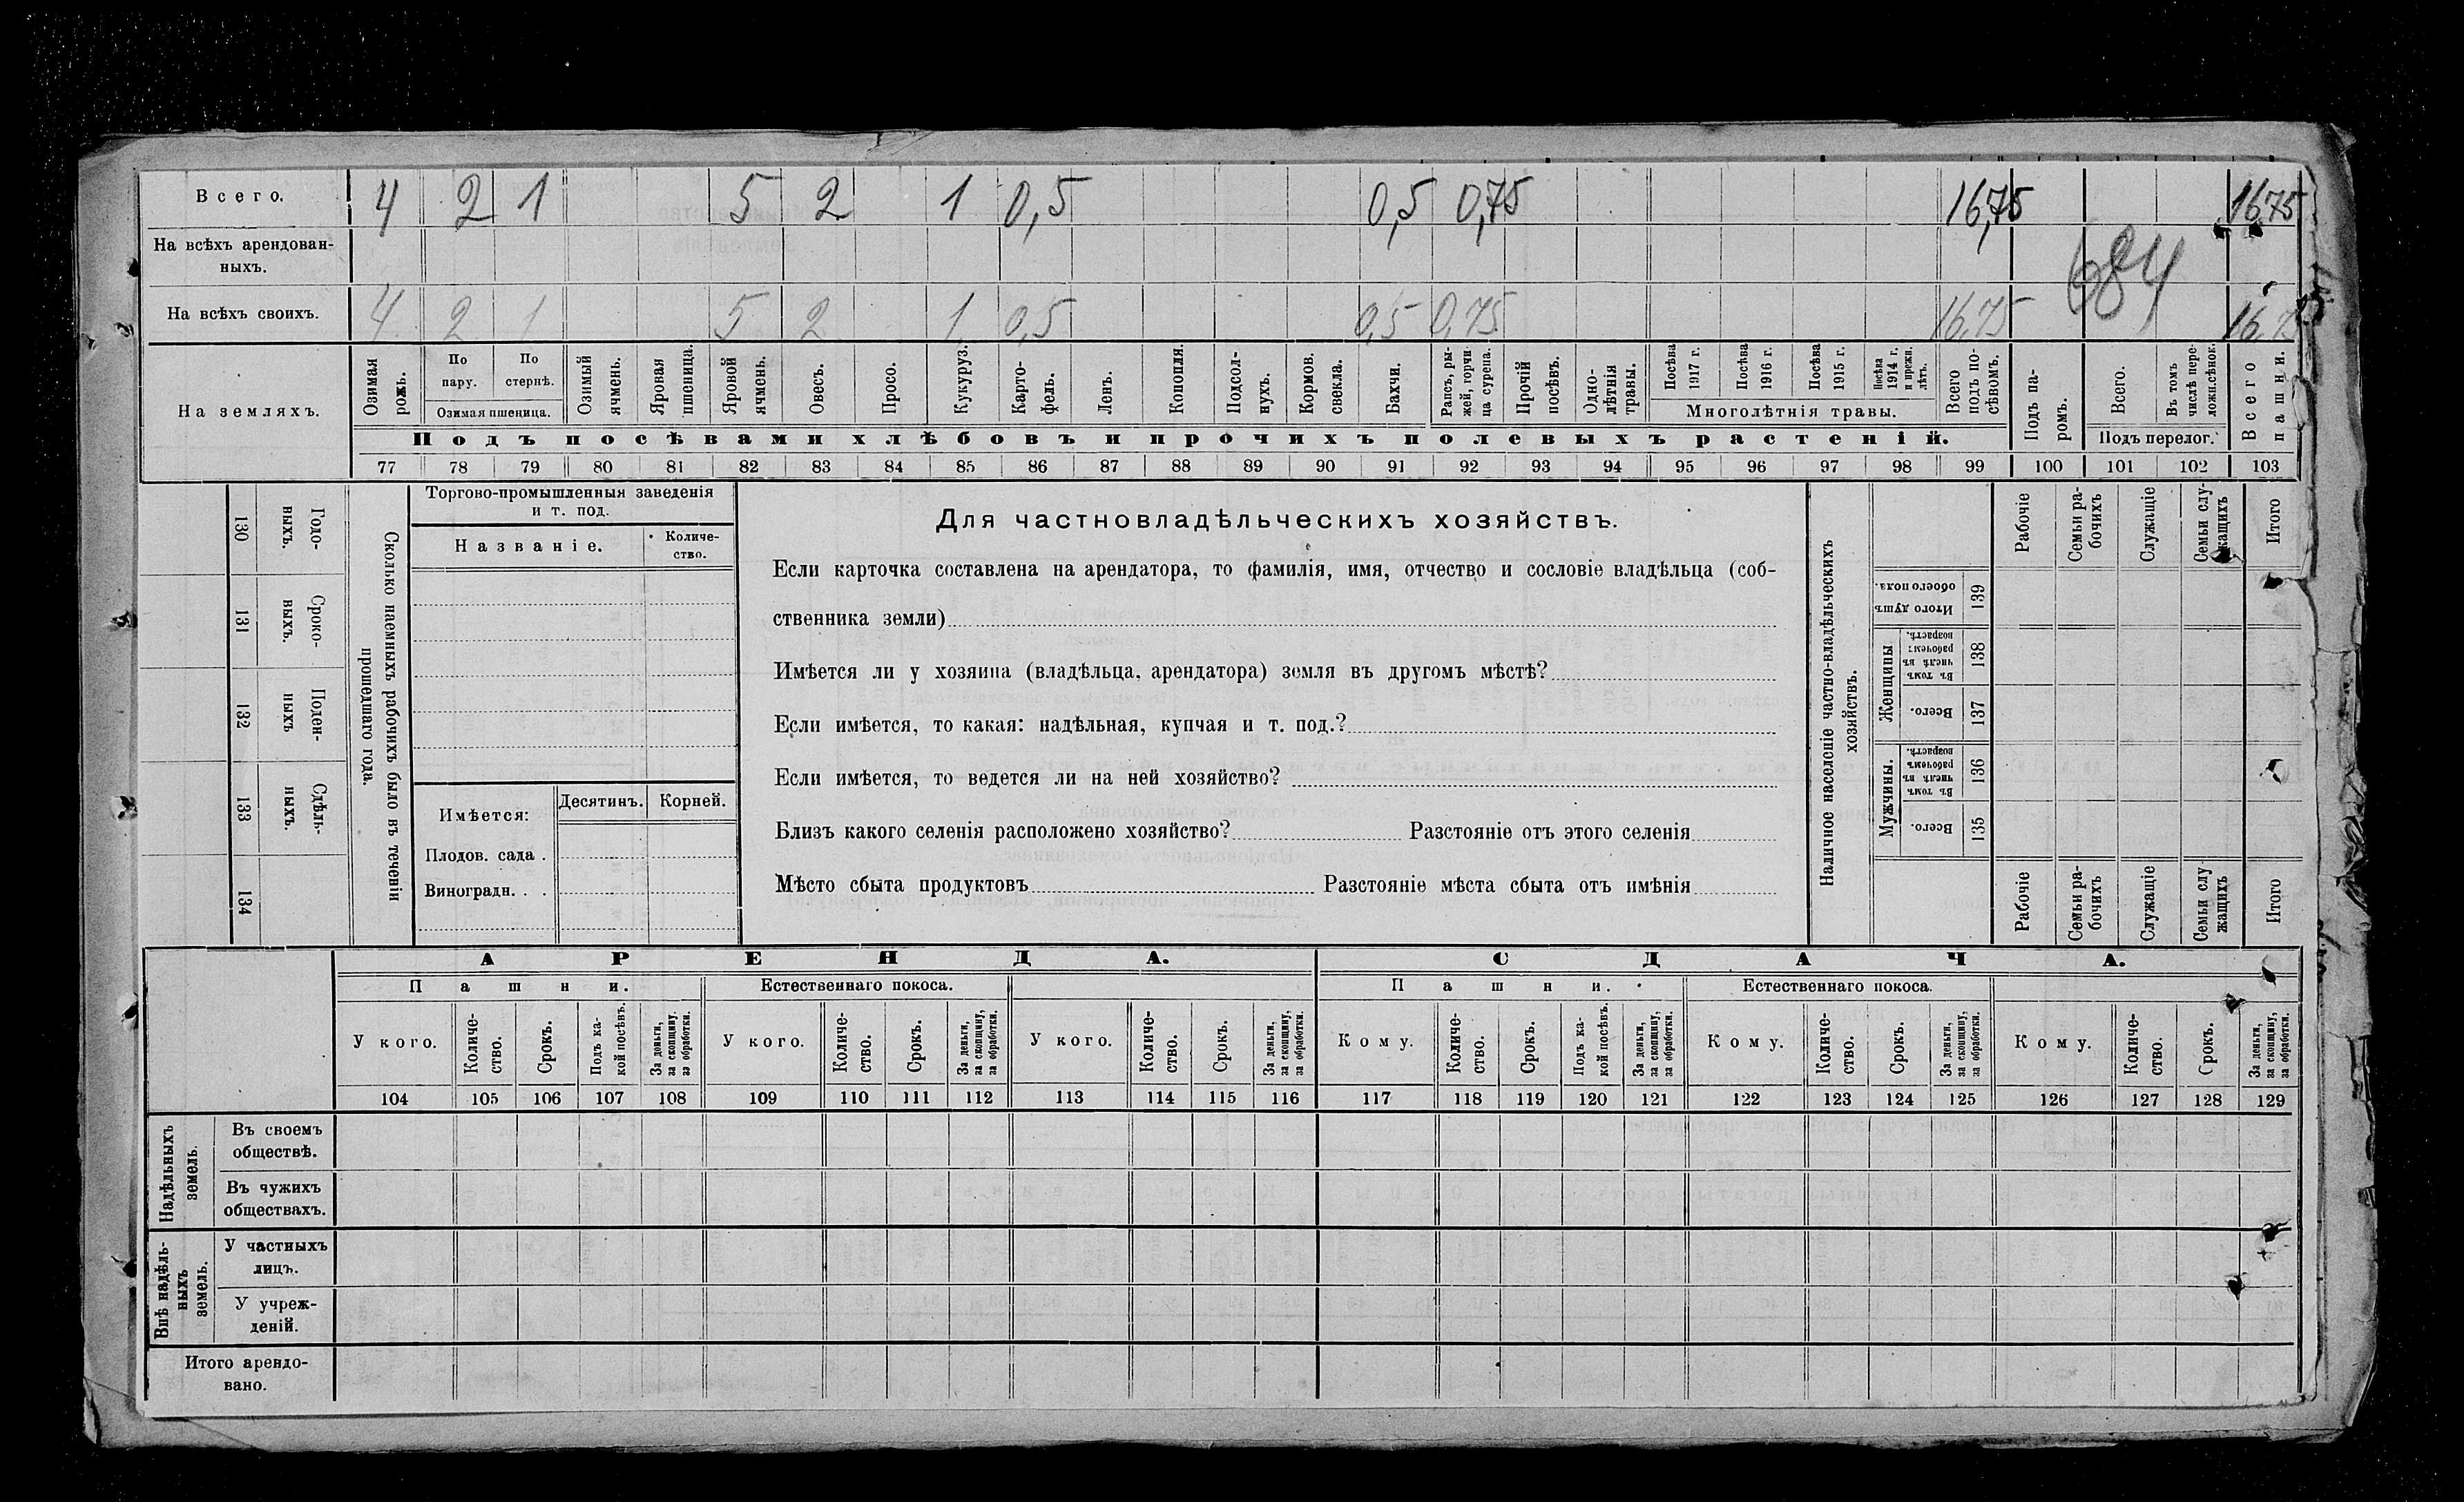 Всего. 4 2 1 5 2 1 0,5 0,5 0,75 16,75 16,75
На всѣхъ арендован-
ныхъ.
684
На всѣхъ своихъ. 4 2 1 5 2 1 0,5 0,5 0,75 16,75 16,75
На земляхъ.
Озимая рожь.
По пару.
По стернѣ.
Озимая пшеница.
Озимый ячмень.
Яровая пшеница.
Яровой ячмень.
Овесъ.
Просо.
Кукуруз.
Карто-
фель.
Ленъ.
Конопля.
Подсол-
нухъ.
Кормов. свекла.
Бахчи.
Рапсъ, ры-
жей, горчи-
ца сурепа.
Прочій посѣвъ.
Одно-
лѣтнія травы.
Посѣва 1917 г.
Посѣва 1916 г.
Посѣва 1915 г.
Посѣва 1914 г. и прежн. лѣтъ.
Многолѣтнія травы.
Всего подъ по-
сѣвомъ.
Подъ па-
ромъ.
Всего.
Въ томъ числѣ пере-
ложн.сѣнок.
Подъ перелог.
Всего пашни.
Подъ посѣвами хлѣбовъ и прочихъ полевыхъ растеній.
77 78 79 80 81 82 83 84 85 86 87 88 89 90 91 92 93 94 95 96 97 98 99 100 101 102 103
Сколько наемныхъ рабочихъ было въ теченіи
прошедшаго года.
Годо-
выхъ.
130
Сроко-
выхъ.
131
Поден-
ныхъ
132
Сдѣль-
ныхъ.
133
134
Торгово-промышленныя заведенія
и т. под.
Названіе.
Количе-
ство.
Имѣется:
Десятинъ.
Корней.
Плодов. сада .
Виноградн. . .
Для частновладѣльческихъ хозяйствъ.
Если карточка составлена на арендатора, то фамилія, имя, отчество и сословіе владѣльца (соб-
ственника земли)
Имѣется ли у хозяина (владѣльца, арендатора) земля въ другомъ мѣстѣ?
Если имѣется, то какая: надѣльная, купчая и т. под.?
Если имѣется, то ведется ли на ней хозяйство?
Близъ какого селенія расположено хозяйство? Разстояніе отъ этого селенія
Мѣсто сбыта продуктовъ Разстояніе мѣста сбыта отъ имѣнія
Наличное населеніе частно-владѣльческихъ
хозяйствъ.
Рабочіе
Семьи ра-
бочихъ
Служащіе
Семьи слу-
жащихъ
Итого
Итого душъ
обоего пола.
139
Женщины
Въ томъ числѣ въ рабочемъ возрастѣ.
138
Всего.
137
Мужчины.
Въ томъ числѣ въ рабочемъ возрастѣ.
136
Всего.
135
Рабочіе
Семьи ра-
бочихъ
Служащіе
Семьи слу
жащихъ
Итого
АРЕНДА.
СДАЧА.
Пашни.
Естественнаго покоса.
Пашни.
Естественнаго покоса.
У кого.
Количе-
ство.
Срокъ.
Подъ ка-
кой посѣвъ.
За деньги,
за скопщину,
за обработки.
У кого.
Количе-
ство.
Срокъ.
За деньги,
за скопщину,
за обработки.
У кого.
Количе-
ство.
Срокъ.
За деньги,
за скопщину,
за обработки.
Кому.
Количе-
ство.
Срокъ.
Подъ ка-
кой посѣвъ.
За деньги,
за скопщину,
за обработки.
Кому.
Количе-
ство.
Срокъ.
За деньги,
за скопщину,
за обработки.
Кому.
Количе-
ство.
Срокъ.
За деньги,
за скопщину,
за обработки.
104 105 106 107 108 109 110 111 112 113 114 115 116 117 118 119 120 121 122 123 124 125 126 127 128 129
Надѣльныхъ
земель.
Въ своемъ
обществѣ.
Въ чужихъ
обществахъ.
Внѣ надѣль-
ныхъ
земель.
У частныхъ
лицъ.
У учреж-
деній.
Итого арендо-
вано.